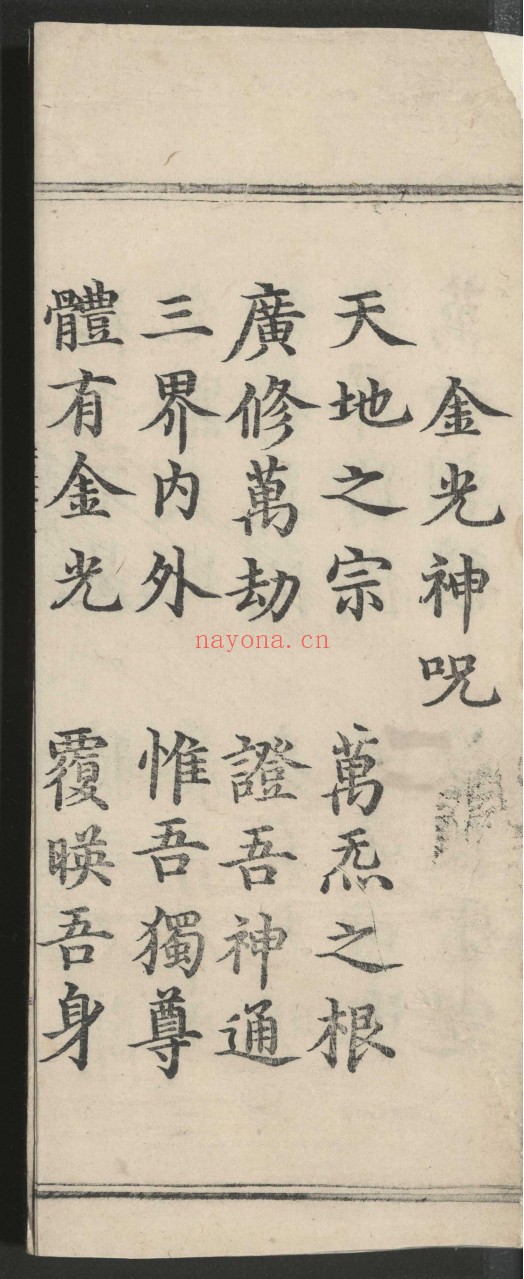 金光神呪
天地之宗 萬炁之根
廣修萬劫 證吾神通
三界内外 惟吾獨尊
體有金光 覆暎吾身
nayona.cn